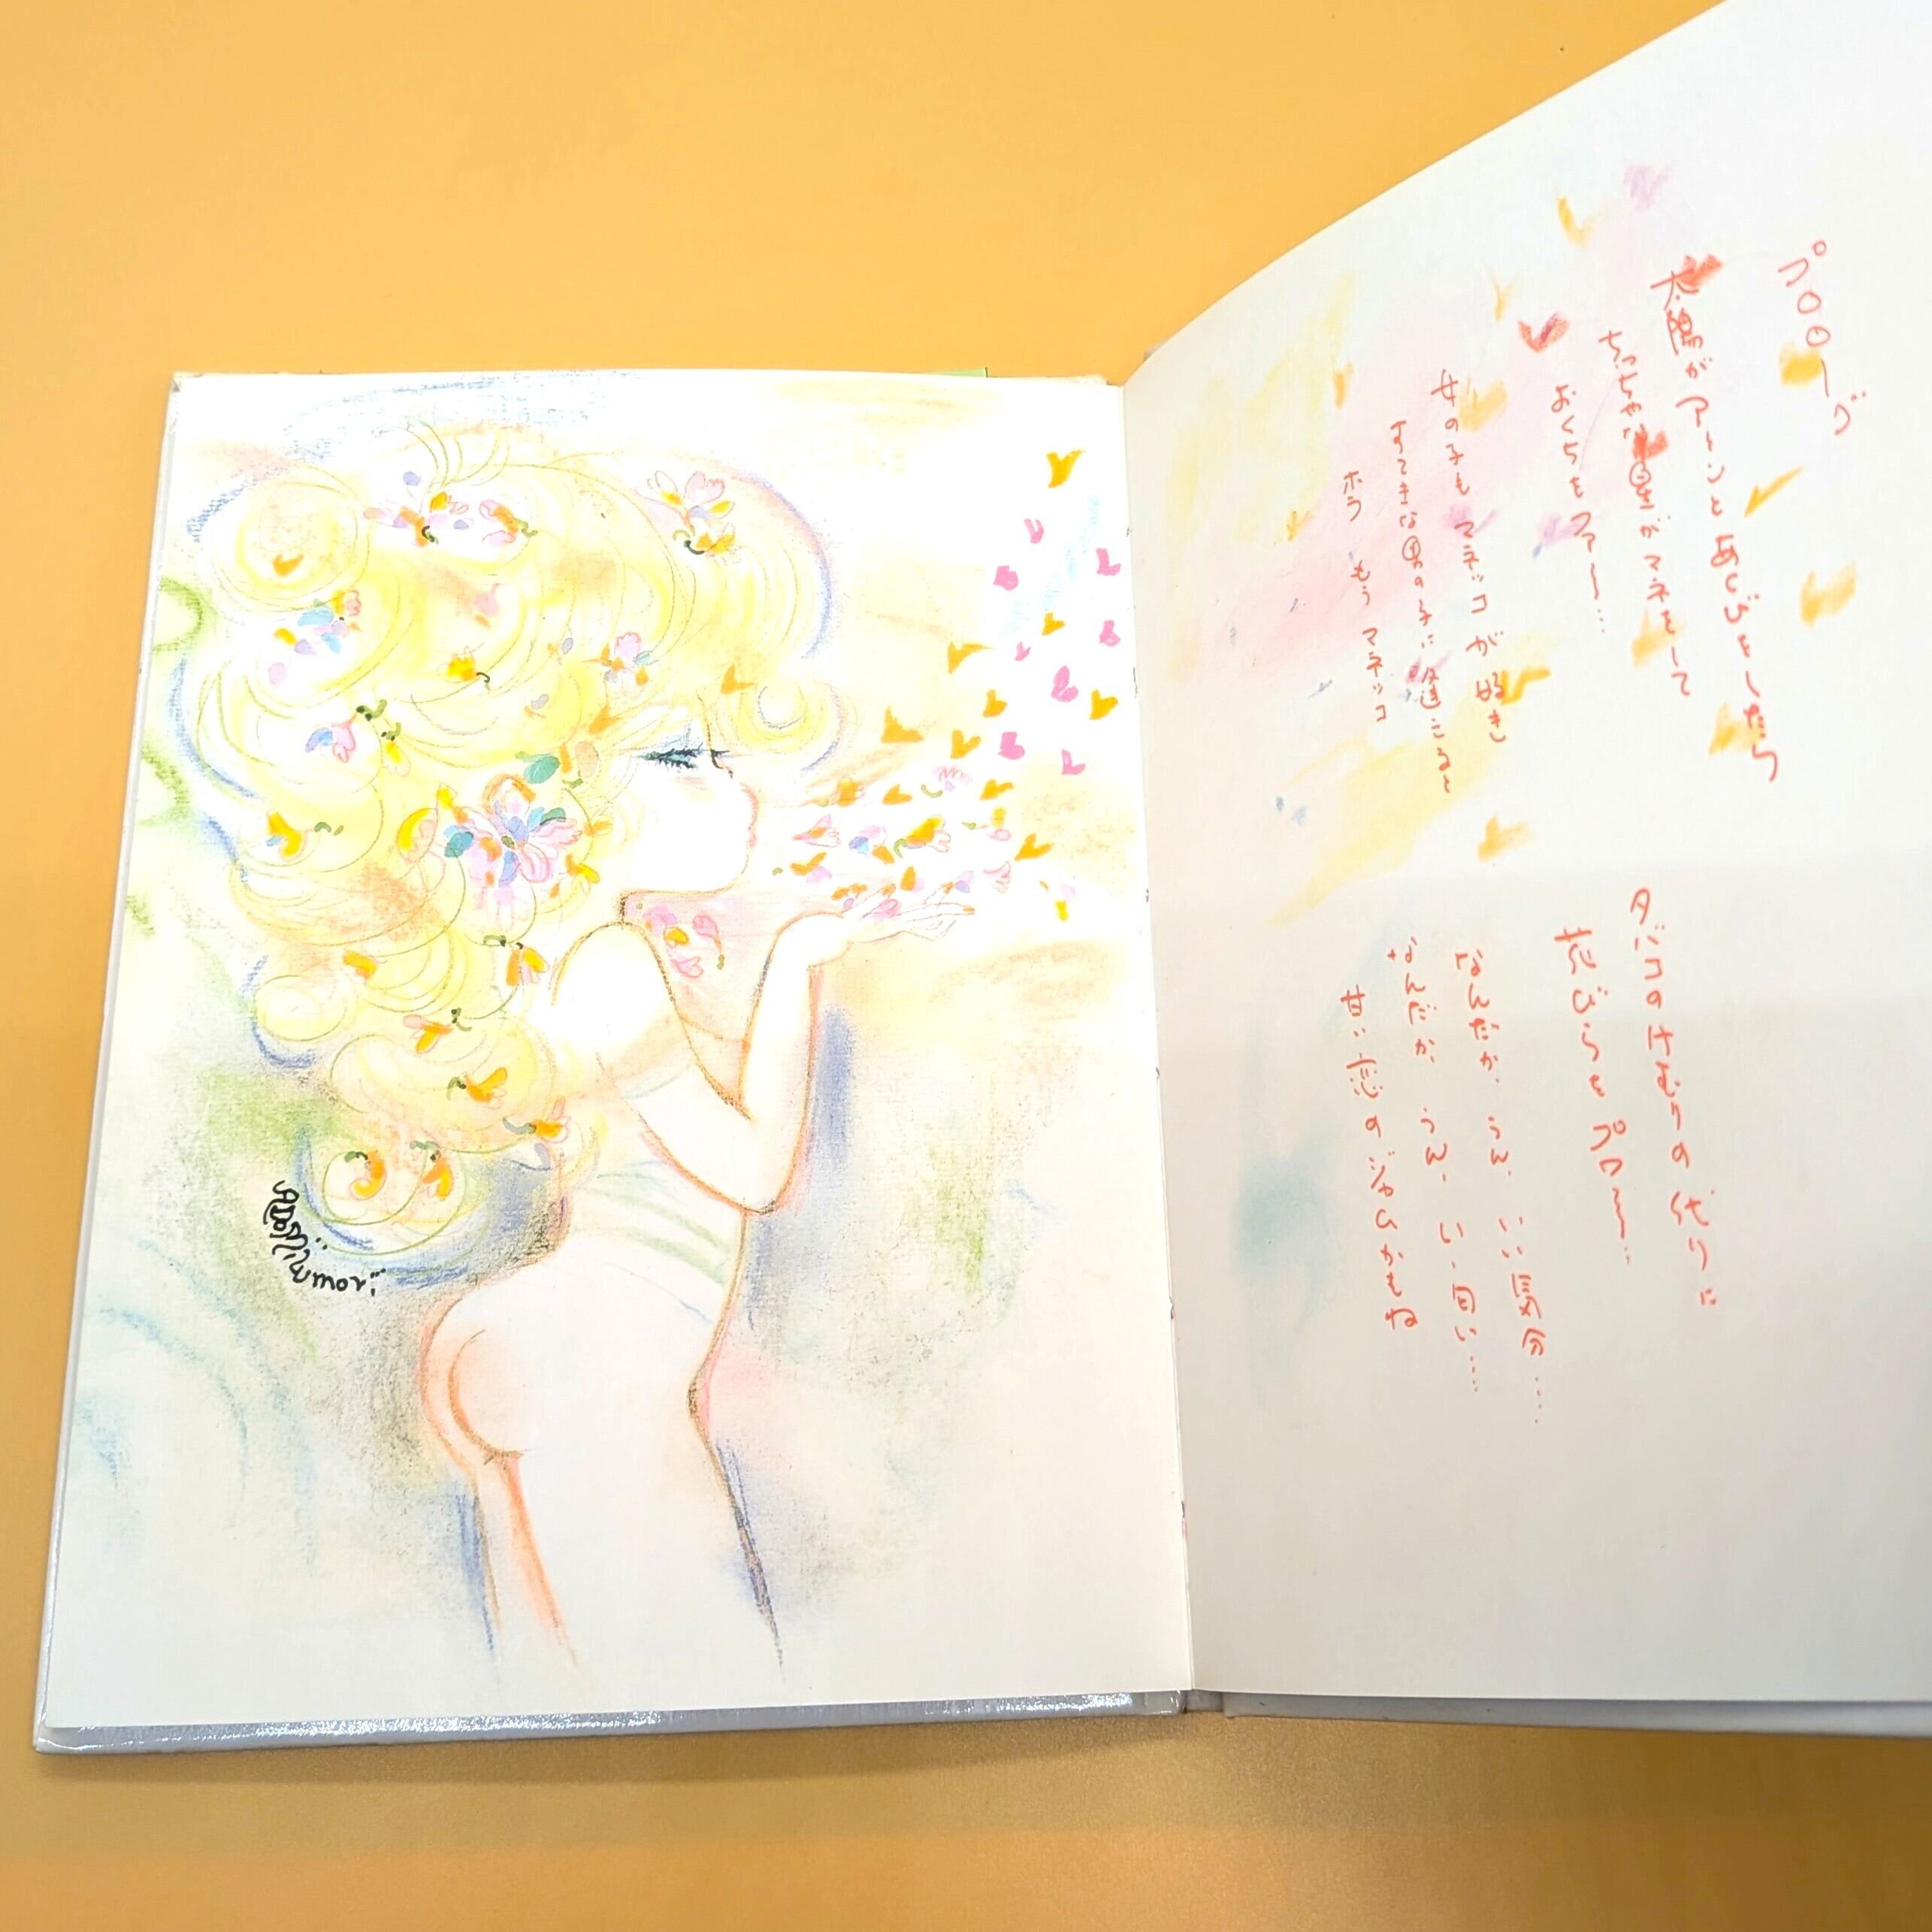 プロローグ
太陽がアーンとあくびをしたら
ちっちゃな星がマネをして
おくちをファー…
女の子も マネッコが好き
すてきな男の子に逢こると
ホラ もう マネッコ
タバコのけむりの代りに
花びらをプロー…
なんだか、うん、いい気分……
なんだか、うん、いい匂い……
甘い恋のジャムかもね
mori